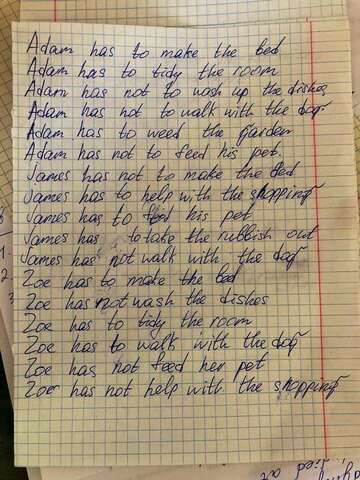 Adam has to make the bed
Adam has to tidy the room
Adam has not to wash up the dishes
Adam has not to walk with the dog
Adam has to weed the garden
Adam has not to feed his pet.
James has not to make the bed
James has to help with the shopping
James has to feed his pet
James has to take the rubbish out
James has not walk with the dog
Zoe has to make the bed
Zoe has not wash the dishes
Zoe has to tidy the room
Zoe has to walk with the dog
Zoe has not feed her pet
Zoe has not help with the shopping